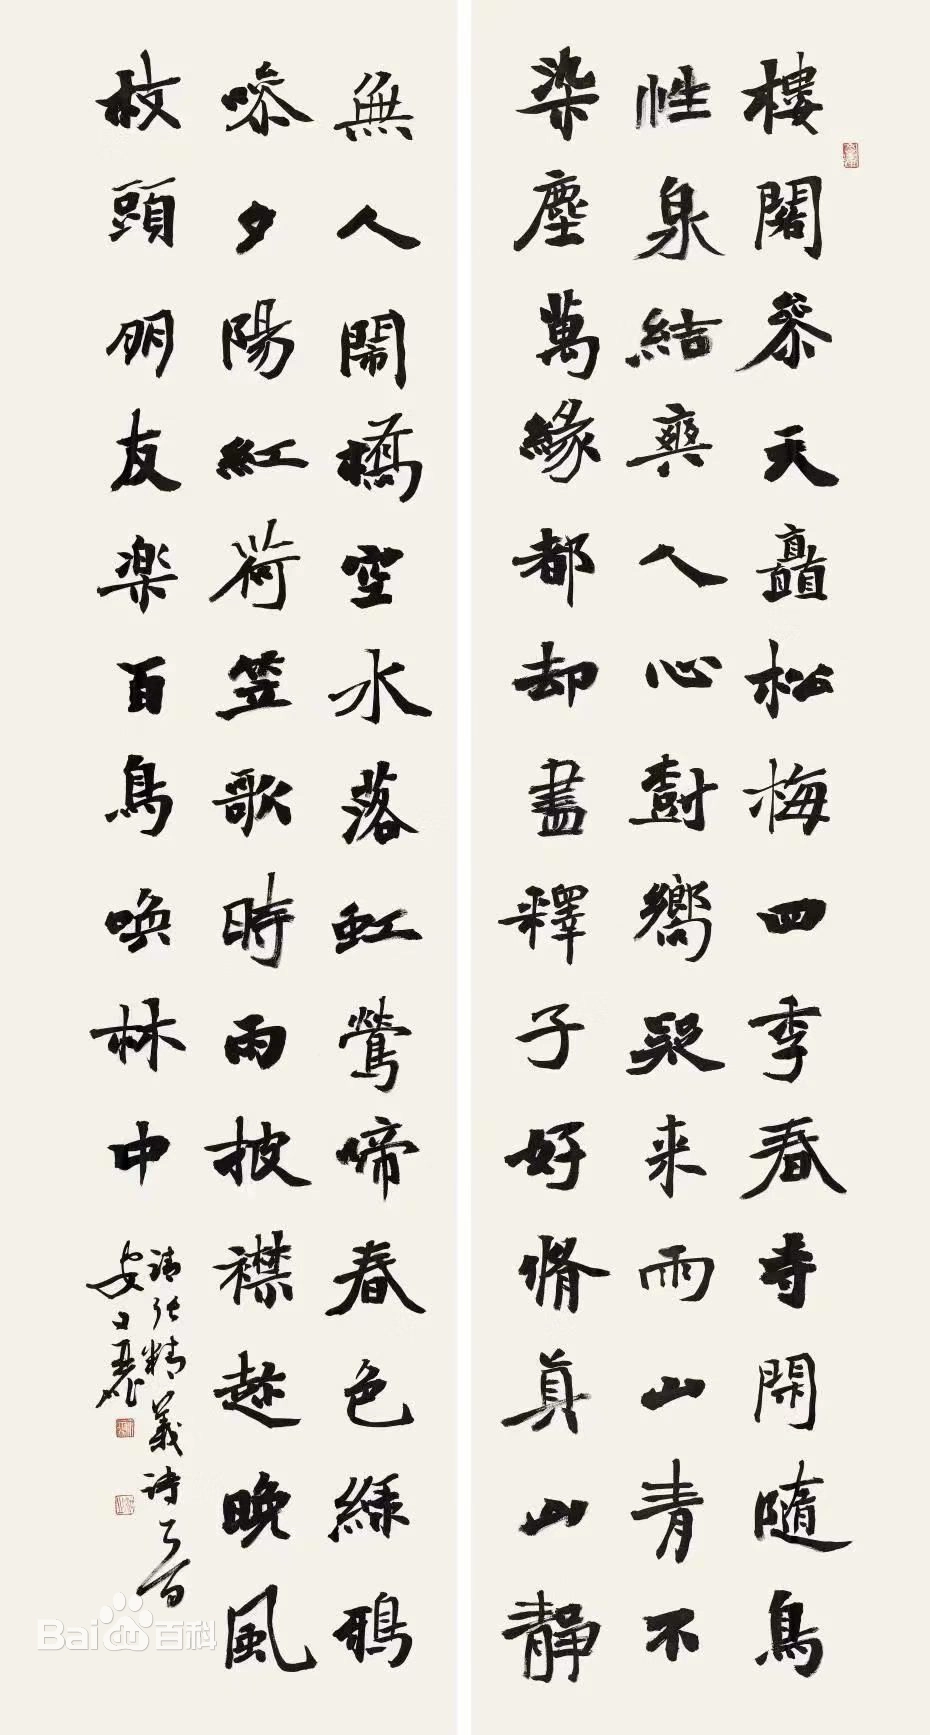 樓閣參天矗松梅四季春寺閑隨鳥
性泉結爽人心樹嚮疑来雨山青不
染塵萬緣都却盡釋子好脩真山靜
無人鬧橋空水落虹鶯啼春色綠鴉
噪夕陽紅荷笠歌時雨披襟趁晚風
枝頭朋友楽百鳥喚林中
清張精義詩二首
Baidu百科